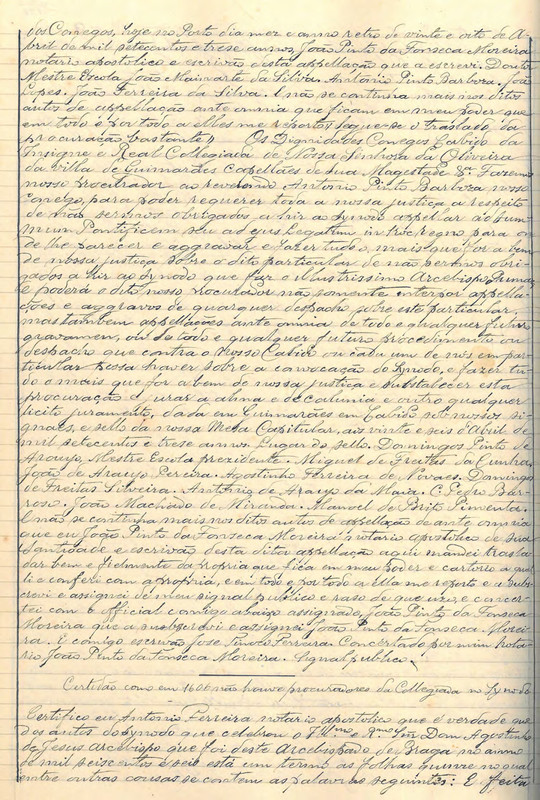 dos Conegos, hoje no Porto dia mez e anno retro de vinte e oito de A-
bril de mil setecentos e trese annos, João Pinto da Fonseca Moreira
notario apostolico e escrivão desta appellação que a escrevi. Doutor
Mestre Escola João Mainarte da Silva. Antonio Pinto Barboza. João
Lopes. João Ferreira da Silva. E não se continha mais nos ditos
autos de appellação ante omnia que ficam em meu poder que
em todo e por todo a elles me reporto. Segue-se o traslado da
procuração bastante,, Os Dignidades Conegos Cabido da
Insigne e Real Collegiada de Nossa Senhora da Oliveira
da Villa de Guimarães Capellães de Sua Magestade &ª Fazemos
nosso procurador ao reverendo Antonio Pinto Barboza nosso
Conego, para poder requerer toda a nossa justiça a respeito
de não sermos obrigados a hir ao Synodo appellar ad Sum-
mum Pontificem seu ad ejus Legatum in hoc regno para on-
de lhe parecer e aggravar e fazer tudo, mais que for a bem
de nossa justiça sobre o dito particular de não sermos obri-
gados a hir ao Synodo que faz o illustrissimo Arcebispo Primaz
e poderá o dito nosso procurador não somente interpor appella-
ções e aggravos de quarquer despacho sobre este particular,
mas tambem appellações ante omnia de todo e qualquer futuro
gravamen, ou de todo e qualquer futuro procedimento ou
despacho que contra o Nosso Cabido ou cada um de nós em par-
ticular possa haver sobre a convocação do Synodo, e fazer tu-
do o mais que for a bem de nossa justiça e substabelecer esta
procuração e jurar a alma e de calumnia e outro qualquer
licito juramento, dada em Guimarães em Cabido sob nossos si-
gnaes, e sello da nossa Meza Capitular, aos vinte e seis d'Abril de
mil setecentos e trese annos. Lugar do sello. Domingos Pinto de
Araujo, Mestre Escola prezidente. Miguel de Freitas da Cunha.
João de Araujo Pereira. Agostinho Ferreira de Novaes. Domingos
de Freitas Silveira. Antonio de Araujo da Maia. C. Pedro Bar-
roso. João Machado de Miranda. Manoel de Brito Pimenta.
E não se continha mais nos ditos autos de appellação de ante omnia
que eu João Pinto da Fonseca Moreira notario apostolico de Sua
Santidade e escrivão desta dita appellação aqui mandei trasla-
dar bem e fielmente da propria que fica em meu poder e cartorio a qual
li e conferi com a propria, e em todo e por todo a ella me reporto e a subs-
crevi e assignei de meu signal publico e raso de que uzo, e concer-
tei com o official comigo abaixo assignado, João Pinto da Fonseca
Moreira que a subscrevi e assignei João Pinto da Fonseca Morei-
ra. E comigo escrivão José Pinto Pereira. Concertado por mim nota-
rio João Pinto da Fonseca Moreira. Signal publico.
Certidão como em 1606 não houve procuradores da Collegiada no Synodo
Certifico eu Antonio Ferreira notario apostolico que é verdade que
dos autos do Synodo que celebrou o Illmo e Rmo Snr Dom Agostinho
de Jesus Arcebispo que foi deste Arcebispado de Braga no anno
de mil seiscentos e seis está um termo as folhas quinze no qual
entre outras cousas se contem as palavras seguintes: E feita